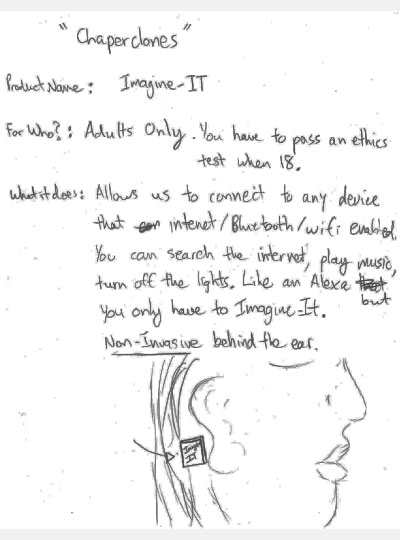 "Chaperclones"
Product Name: Imagine-IT
For Who?: Adults Only. You have to pass an ethics
test when 18.
What it does: Allows us to connect to any device
that internet/Bluetooth/wifi enabled.
You can search the internet, play music,
turn off the lights. Like an Alexa but
You only have to Imagine-It.
Non-Invasive behind the ear.
Imagine
IT